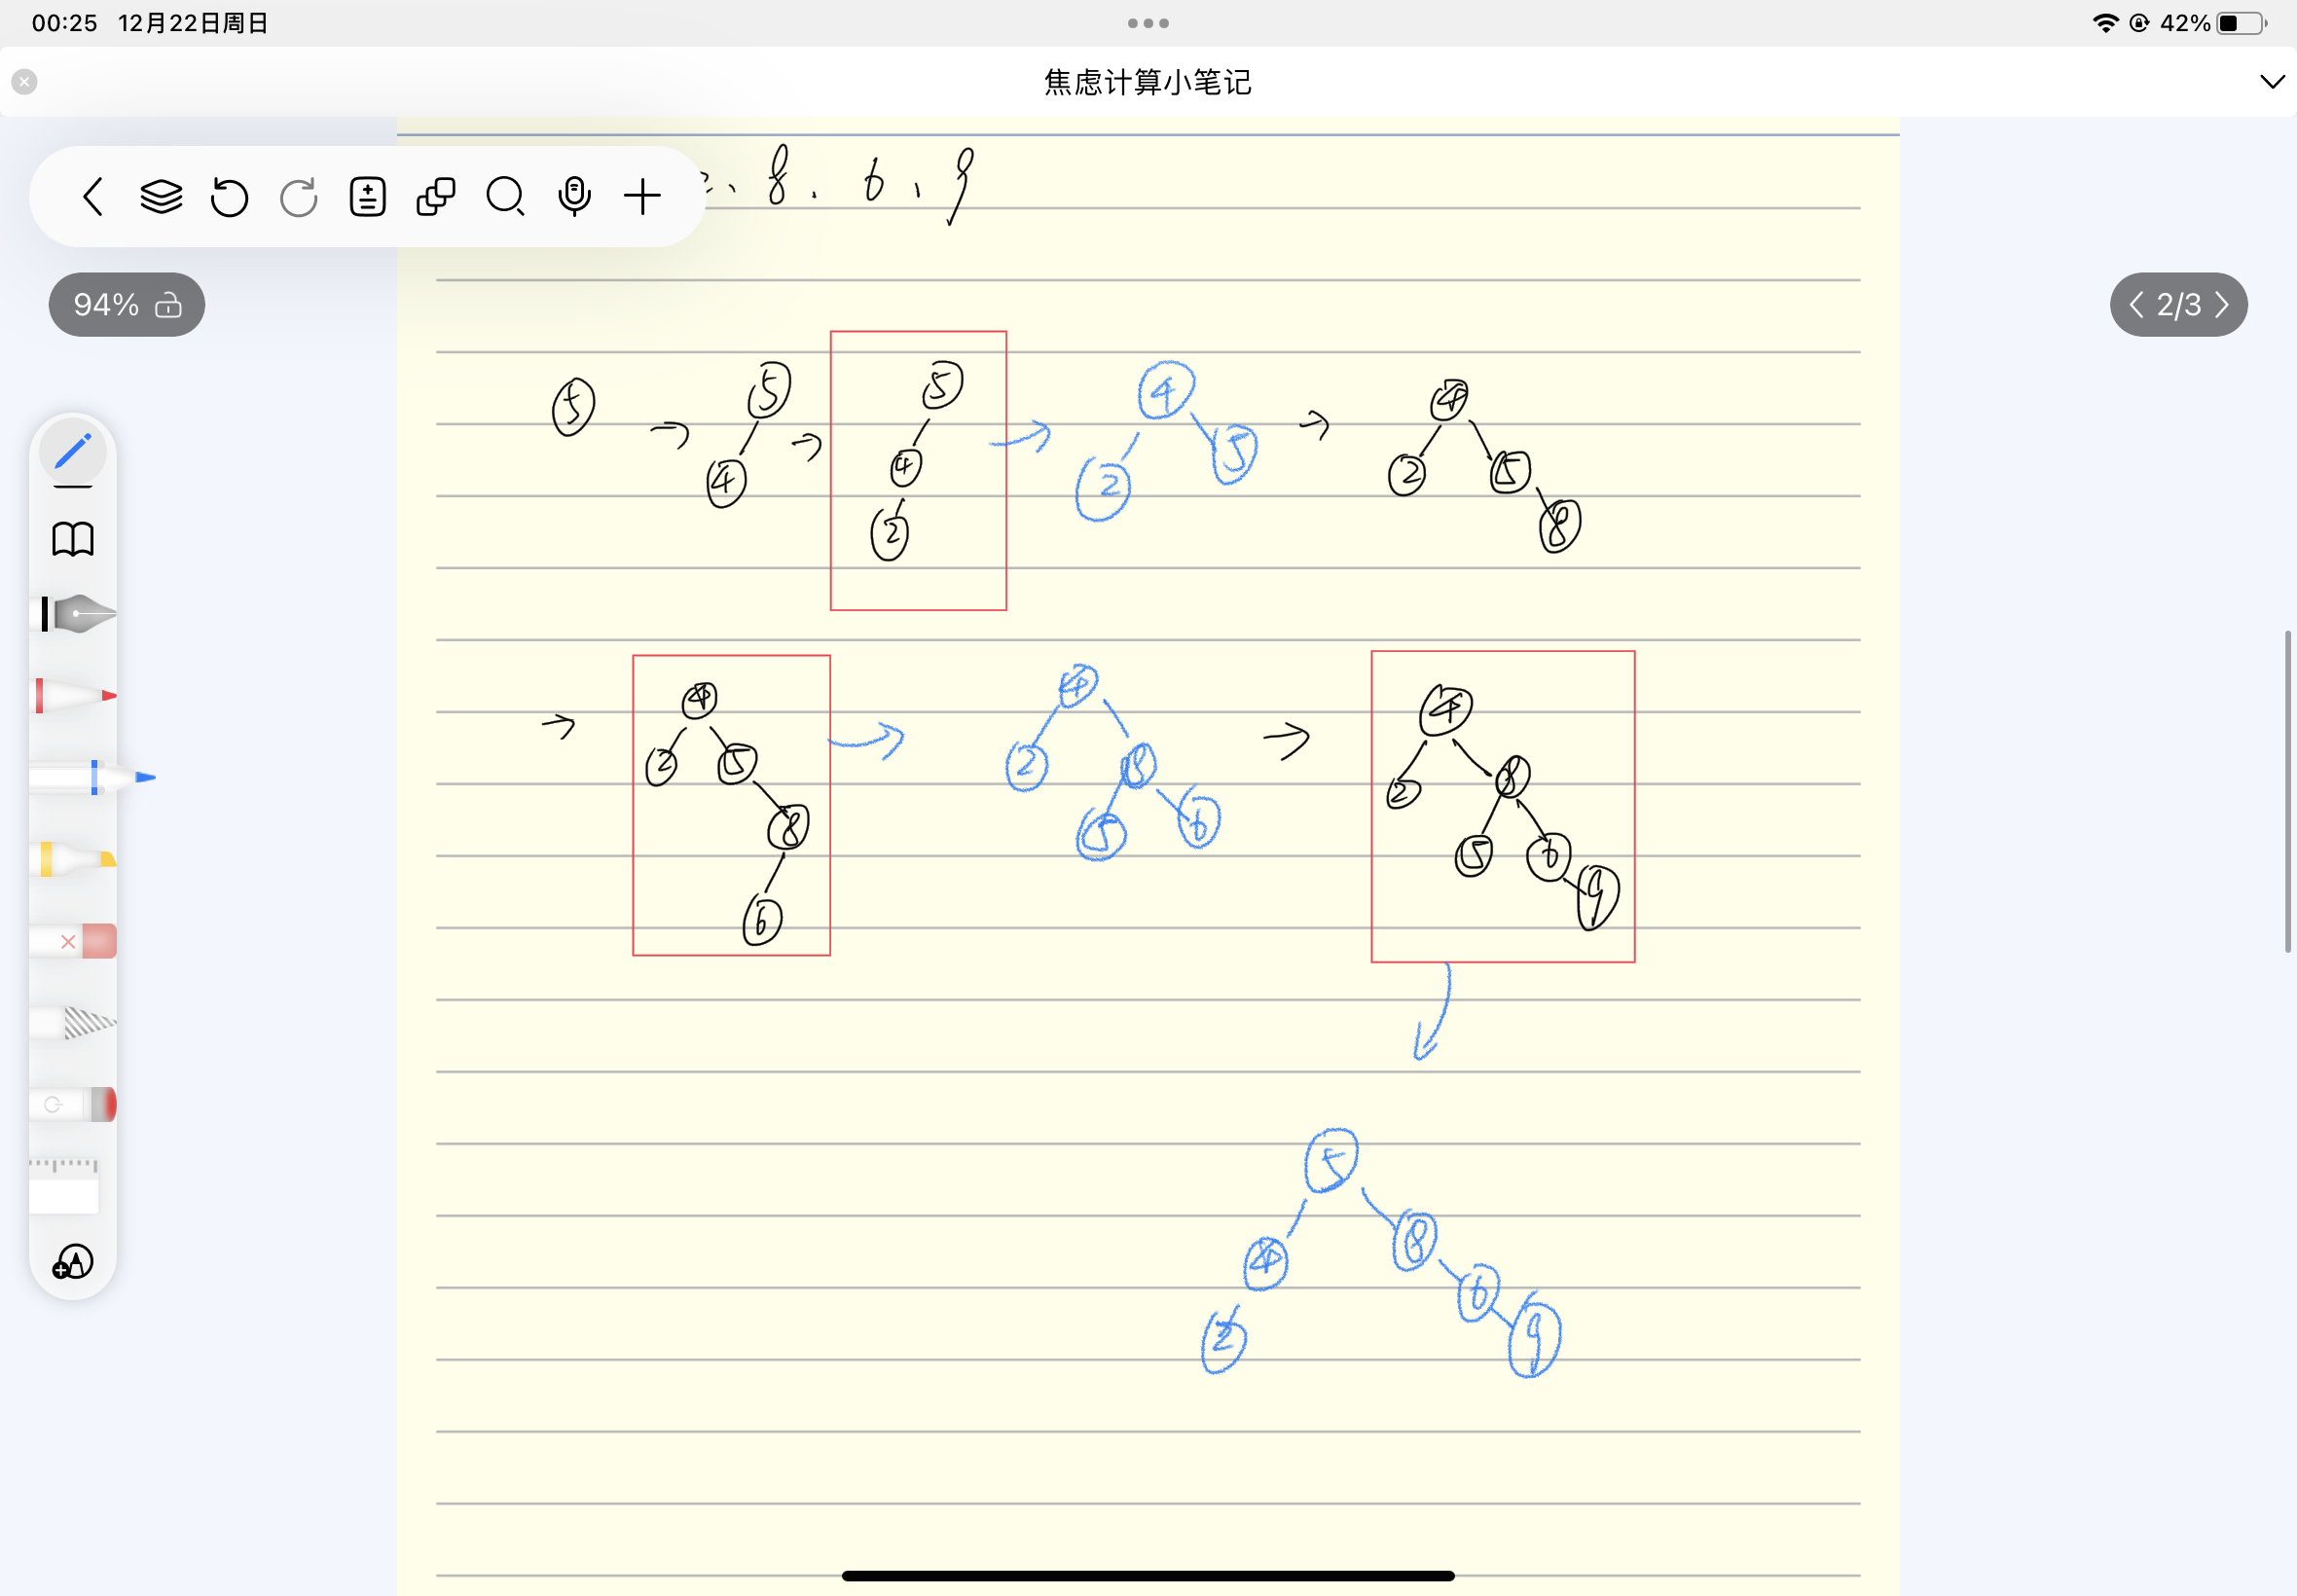 00:25 12月22日周日
42%
焦虑计算小笔记
、8、6、9
94%
2/3
5 → 5 4 → 5 4 2 → 4 2 5 → 4 2 5 8
→ 4 2 5 8 6 → 4 2 8 5 6 → 4 2 8 5 6 9
5
4 8
2 6 9